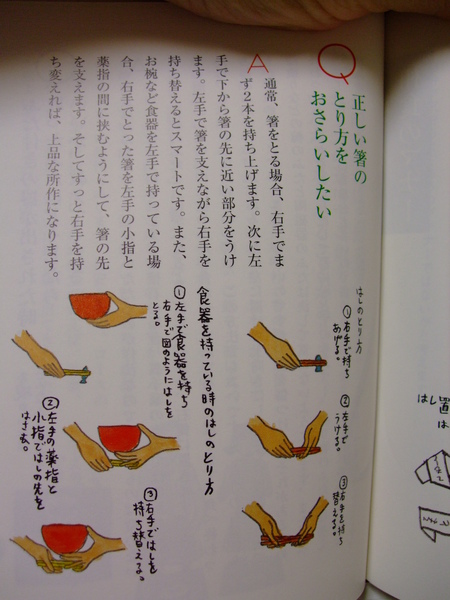 Q
正しい箸の
とり方を
おさらいしたい
A
通常、箸をとる場合、右手でま
ず2本を持ち上げます。次に左
手で下から箸の先に近い部分をうけ
ます。左手で箸を支えながら右手を
持ち替えるとスマートです。また、
お椀など食器を左手で持っている場
合、右手でとった箸を左手の小指と
薬指の間に挟むようにして、箸の先
を支えます。そしてすっと右手を持
ち変えれば、上品な所作になります。
はしのとり方
①右手で持ち
あげる。
②左手で
うける。
③右手を持ち
替える。
食器を持っている時のはしのとり方
①左手で食器を持ち
右手で図のようにはしを
とる。
②左手の薬指と
小指ではしの先を
はさむ。
③右手ではしを
持ち替える。
はし置
は